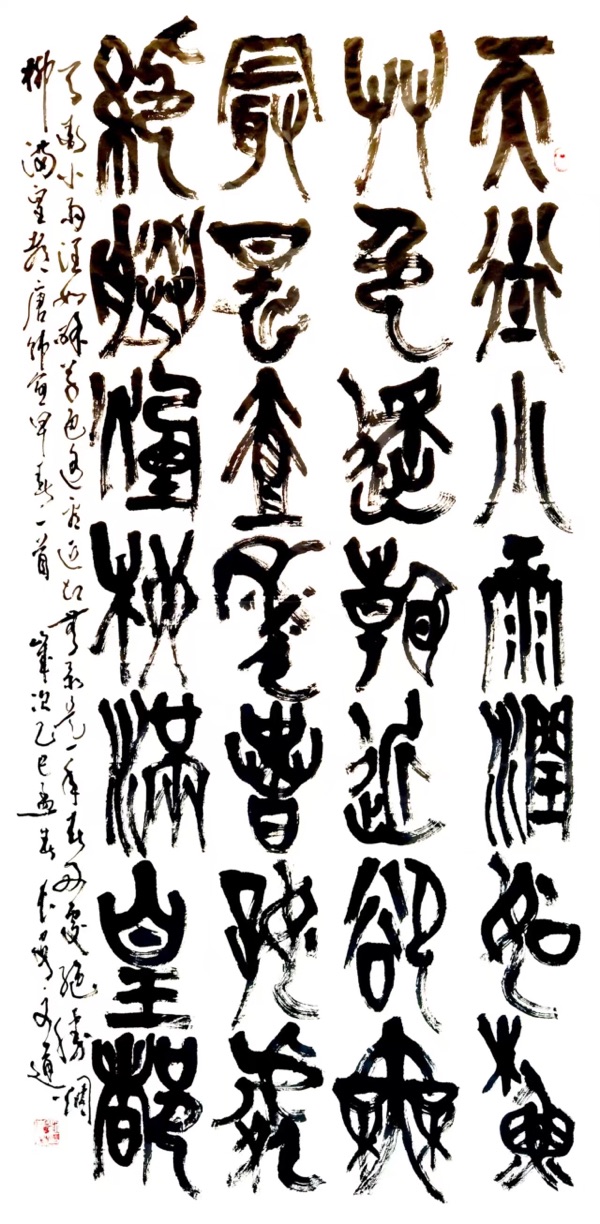 天街小雨潤如酥
艸色遙看近卻無
最是壹年春好處
絕勝煙柳滿皇都
天街小雨潤如酥草色遙看近却無最是一年春好處絕勝烟
柳滿皇都唐韓愈早春一首歲次乙巳孟春